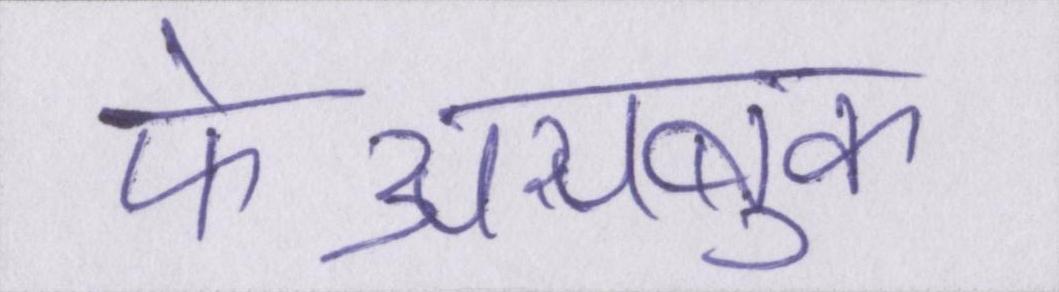 फेअसबुक